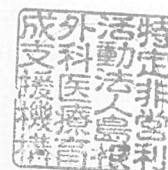 特定非営利
活動法人
外科医療育
成支援機構